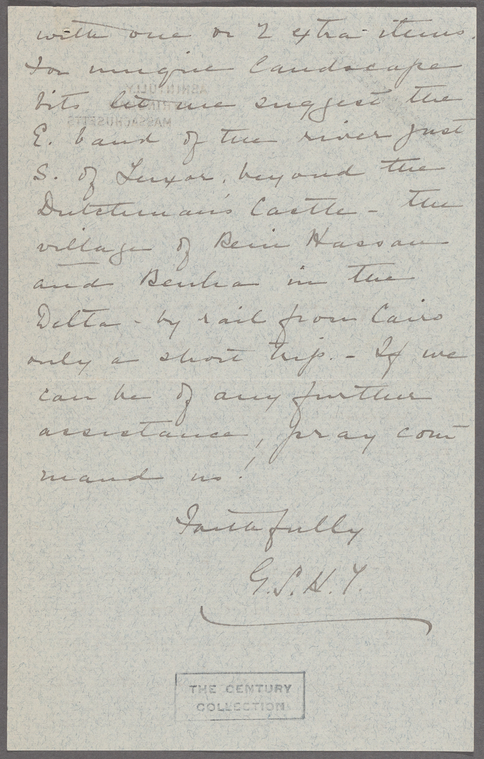 with one or 2 extra items.
For unique landscape
bits let me suggest the
E. band of the river just
S. of Luxor, beyond the
Dutchman's Castle - the
village of Beni Hassan
and Benha in the
Delta - by rail from Cairo
only a short trip. - If we
can be of any further
assistance, pray com
mand us!
Faithfully
G.S.H.Y.
THE CENTURY
COLLECTION